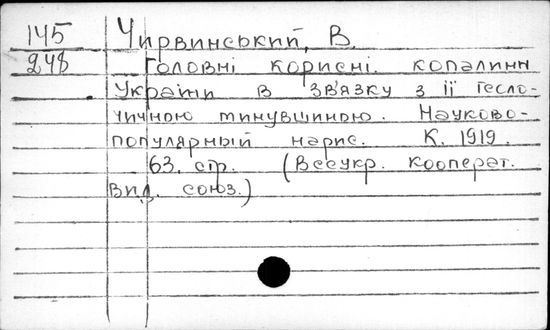 145 Чирвинський, В.
248 Головні корисні копалини
України в звязку з її геоло-
гичною минувшиною. Науково-
популярный нарис. К. 1919.
63. стр. (Всеукр. кооперат.
вид. союз.)